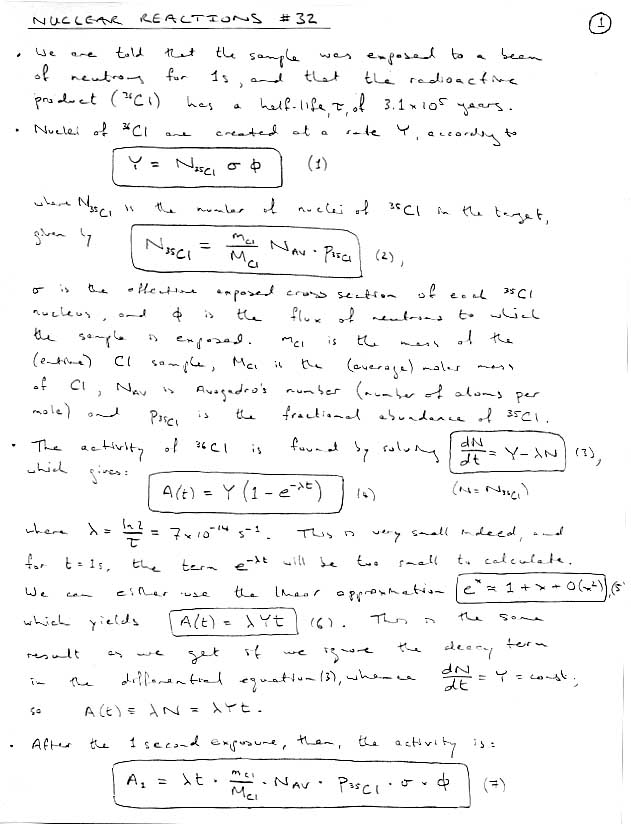 NUCLEAR REACTIONS #32
1
• We are told that the sample was exposed to a beam
of neutrons for 1s, and that the radioactive
product (³⁶Cl) has a half-life, τ, of 3.1 x 10⁵ years.
• Nuclei of ³⁶Cl are created at a rate Y, according to
Y = N₃₅Cl σ φ (1)
where N₃₅Cl is the number of nuclei of ³⁵Cl in the target,
given by N₃₅Cl = mCl/MCl NAV · P₃₅Cl (2),
σ is the effective exposed cross section of each ³⁵Cl
nucleus, and φ is the flux of neutrons to which
the sample is exposed. mCl is the mass of the
(entire) Cl sample, MCl is the (average) molar mass
of Cl, NAV is Avogadro's number (number of atoms per
mole) and P₃₅Cl is the fractional abundance of ³⁵Cl.
• The activity of ³⁶Cl is found by solving dN/dt = Y - λN (3),
which gives:
A(t) = Y (1 - e^-λt) (4) (N = N₃₅Cl)
where λ = ln 2/τ = 7 x 10⁻¹⁴ s⁻¹. This is very small indeed, and
for t = 1s, the term e^-λt will be too small to calculate.
We can either use the linear approximation e^x ≈ 1 + x + O(x²), (5
which yields A(t) = λYt (6). This is the same
result as we get if we ignore the decay term
in the differential equation (3), whence dN/dt = Y = const;
so A(t) = λN = λYt.
• After the 1 second exposure, then, the activity is:
A₁ = λt · mCl/MCl · NAV · P₃₅Cl · σ · φ (7)